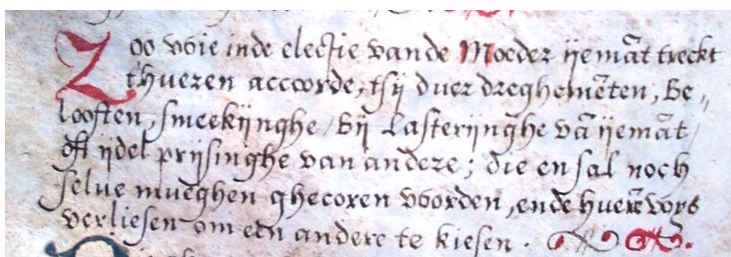 Zoo wie inde electie vande Moeder yemāt treckt
t'hueren accoorde, tsij duer dreghemēten, be„
looften, smeekijnghe, bij Lasterijnghe vā ijemāt,
oft ijdel prijsinghe van andere; die en sal noch
selve mueghen ghecoren woorden, ende huere voys
verliesen om een andere te kiesen.